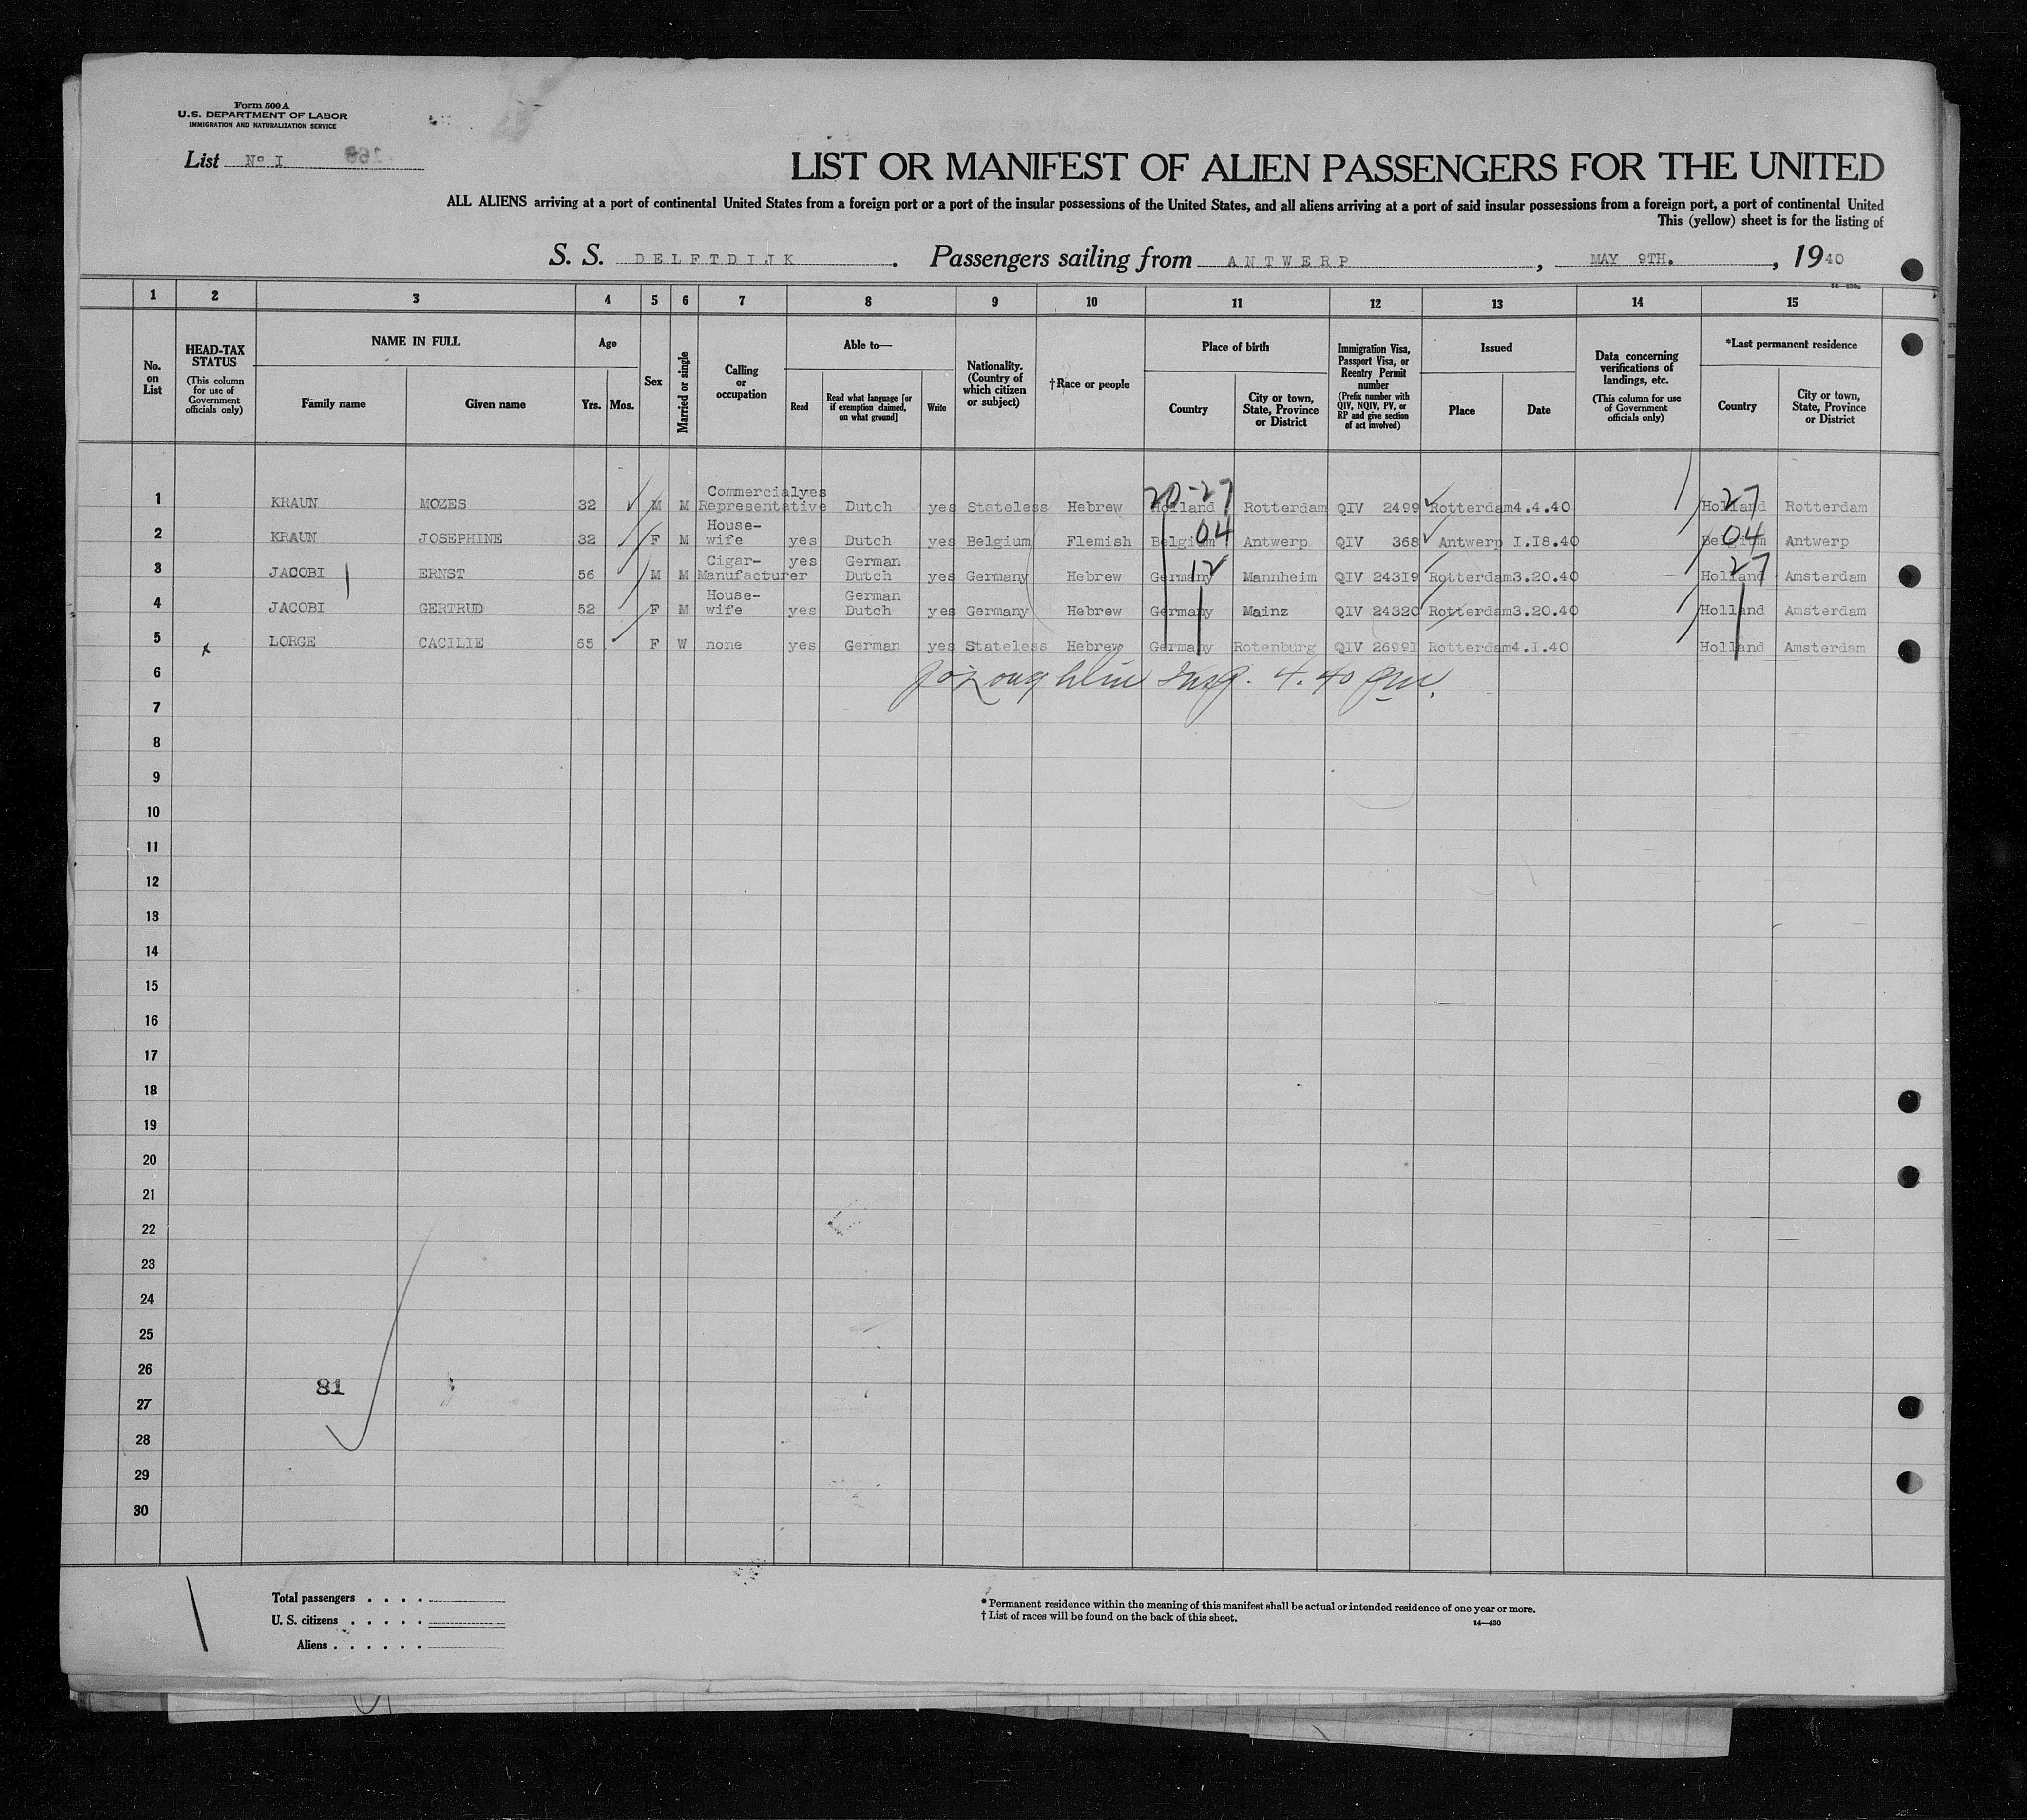 Form 500 A
U.S. DEPARTMENT OF LABOR
IMMIGRATION AND NATURALIZATION SERVICE
List No I
LIST OR MANIFEST OF ALIEN PASSENGERS FOR THE UNITED
ALL ALIENS arriving at a port of continental United States from a foreign port or a port of the insular possessions of the United States, and all aliens arriving at a port of said insular possessions from a foreign port, a port of continental United
This (yellow) sheet is for the listing of
S. S. DELFTDIJK. Passengers sailing from ANTWERP, MAY 9TH., 1940
14-430a
1 2 3 4 5 6 7 8 9 10 11 12 13 14 15
No. on List
HEAD-TAX STATUS (This column for use of Government officials only)
NAME IN FULL
Family name Given name
Age
Yrs. Mos.
Sex
Married or single
Calling or occupation
Able to—
Read
Read what language [or if exemption claimed, on what ground]
Write
Nationality. (Country of which citizen or subject)
†Race or people
Place of birth
Country
City or town, State, Province or District
Immigration Visa, Passport Visa, or Reentry Permit number (Prefix number with QIV, NQIV, PV, or RP and give section of act involved)
Issued
Place Date
Data concerning verifications of landings, etc. (This column for use of Government officials only)
*Last permanent residence
Country
City or town, State, Province or District
1 KRAUN MOZES 32 M M Commercial Representative yes Dutch yes Stateless Hebrew Holland 20-27 Rotterdam QIV 2499 Rotterdam 4.4.40 Holland 27 Rotterdam
2 KRAUN JOSEPHINE 32 F M House-wife yes Dutch yes Belgium Flemish Belgium 04 Antwerp QIV 368 Antwerp I.I8.40 Belgium 04 Antwerp
3 JACOBI ERNST 56 M M Cigar-Manufacturer yes German Dutch yes Germany Hebrew Germany 12 Mannheim QIV 24319 Rotterdam 3.20.40 Holland 27 Amsterdam
4 JACOBI GERTRUD 52 F M House-wife yes German Dutch yes Germany Hebrew Germany Mainz QIV 24320 Rotterdam 3.20.40 Holland Amsterdam
5 x LORGE CACILIE 65 F W none yes German yes Stateless Hebrew Germany Rotenburg QIV 26991 Rotterdam 4.I.40 Holland Amsterdam
6 Insp. 4.40 pm.
7
8
9
10
11
12
13
14
15
16
17
18
19
20
21
22
23
24
25
26
81
27
28
29
30
Total passengers
U. S. citizens
Aliens
* Permanent residence within the meaning of this manifest shall be actual or intended residence of one year or more.
† List of races will be found on the back of this sheet.
14—430